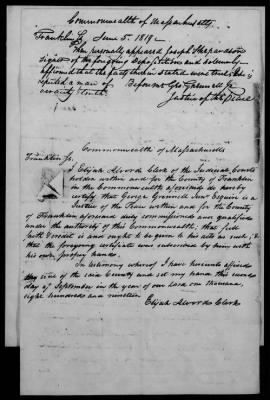 Commonwealth of Massachusetts
Franklin Ss June 5. 1819 —
Then personally appeared Joseph Shepardson
signer of the foregoing Depositions and solemnly
affirmed that the facts therein stated were true & he is
reputed a man of
veracity & truth Before me Geo Grinnell Jr
Justice of the Peace
Commonwealth of Massachusetts
Franklin Ss.
I Elijah Alvord Clerk of the Judicial Courts
holden within and for the County of Franklin
in the Commonwealth aforesaid do hereby
certify that George Grinnell Junr Esquire is a
Justice of the Peace within and for the County
of Franklin aforesaid duly commissioned and qualified
under the authority of this Commonwealth, that full
faith & credit is and ought to be given to his acts as such, &
that the foregoing certificate was subscribed by him with
his own proper hand.
In testimony whereof I have hereunto affixed
the seal of the said County and set my hand this
day of September in the year of our Lord one thousand,
eight hundred and nineteen
Elijah Alvord Clerk